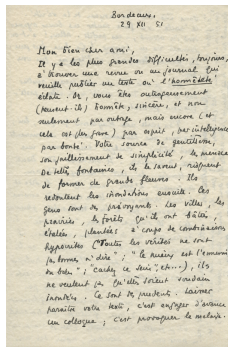 Bordeaux.
29 XII 51
Mon bien cher ami,
Il y a les plus grandes difficultés, toujours,
à trouver une revue ou un journal qui
veuille publier un texte où l'honnêteté
éclate. Or, vous êtes outrageusement
(paraît-il) honnête, sincère, et non
seulement par outrage, mais encore (et
cela est plus grave) par esprit, par intelligence,
par bonté. Votre source de gentillesse,
son jaillissement de simplicité, le menace
De telles fontaines, ils le savent, risquent
de former de grands fleuves. Ils
redoutent les inondations ensuite. Ces
gens sont des prévoyants. Les villes, les
prairies, les forêts qu'ils ont bâties,
étalées, plantées à coups de combinaisons
hypocrites ("Toutes les vérités ne sont
pas bonnes à dire"; "le mieux est l'ennemi
du bien"; "cachez ce sein"; etc...), ils
ne veulent pas qu'elles soient soudain
inondées. Ce sont des prudents. Laisser
paraître votre texte, c'est engager d'avance
un colloque; c'est provoquer le malaise.